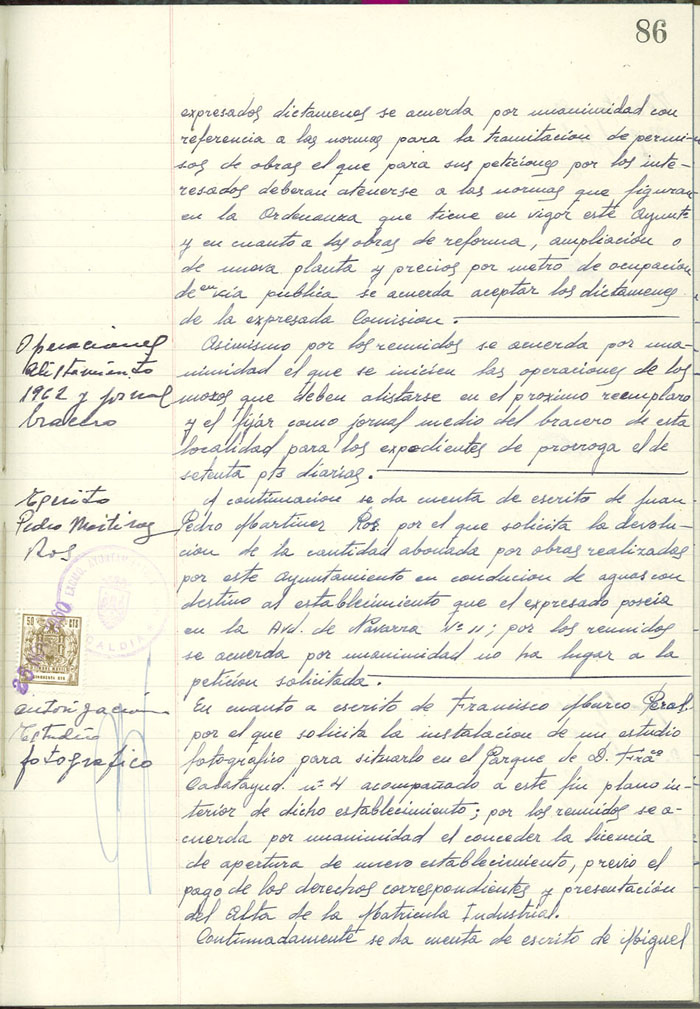 86
expresados dictamenes se acuerda por unanimidad con
referencia a las normas para la tramitacion de permi-
sos de obras el que para sus peticiones por los inte-
resados deberan atenerse a las normas que figuran
en la Ordenanza que tiene en vigor este Ayuntº
y en cuanto a las obras de reforma, ampliación o
de nueva planta y precios por metro de ocupación
de en via publica se acuerda aceptar los dictamenes
de la expresada Comision.
Operaciones
Alistamiento
1962 y jornal
bracero
Asimismo por los reunidos se acuerda por una-
nimidad el que se inicien las operaciones de los
mozos que deben alistarse en el proximo reemplazo
y el fijar como jornal medio del bracero de esta
localidad para los expedientes de prorroga el de
setenta pts diarias.
Escrito
Pedro Martinez
Ros
A continuacion se da cuenta de escrito de Juan
Pedro Martinez Ros por el que solicita la devolu-
cion de la cantidad abonada por obras realizadas
por este Ayuntamiento en conducion de aguas con
destino al establecimiento que el expresado poseia
en la Avd. de Navarra Nº 11; por los reunidos
se acuerda por unanimidad no ha lugar a la
peticion solicitada.
ALCALDIA
50 CTS
autorización
Estudio
fotografico
En cuanto a escrito de Francisco Murco Peral
por el que solicita la instalacion de un estudio
fotografico para situarlo en el Parque de D. Fraco
Calatayud nº 4 acompañado a este fin plano in-
terior de dicho establecimiento; por los reunidos se a-
cuerda por unanimidad el conceder la licencia
de apertura de nuevo establecimiento, previo el
pago de los derechos correspondientes y presentación
del Alta de la Matricula Industrial.
Continuadamente se da cuenta de escrito de Miguel